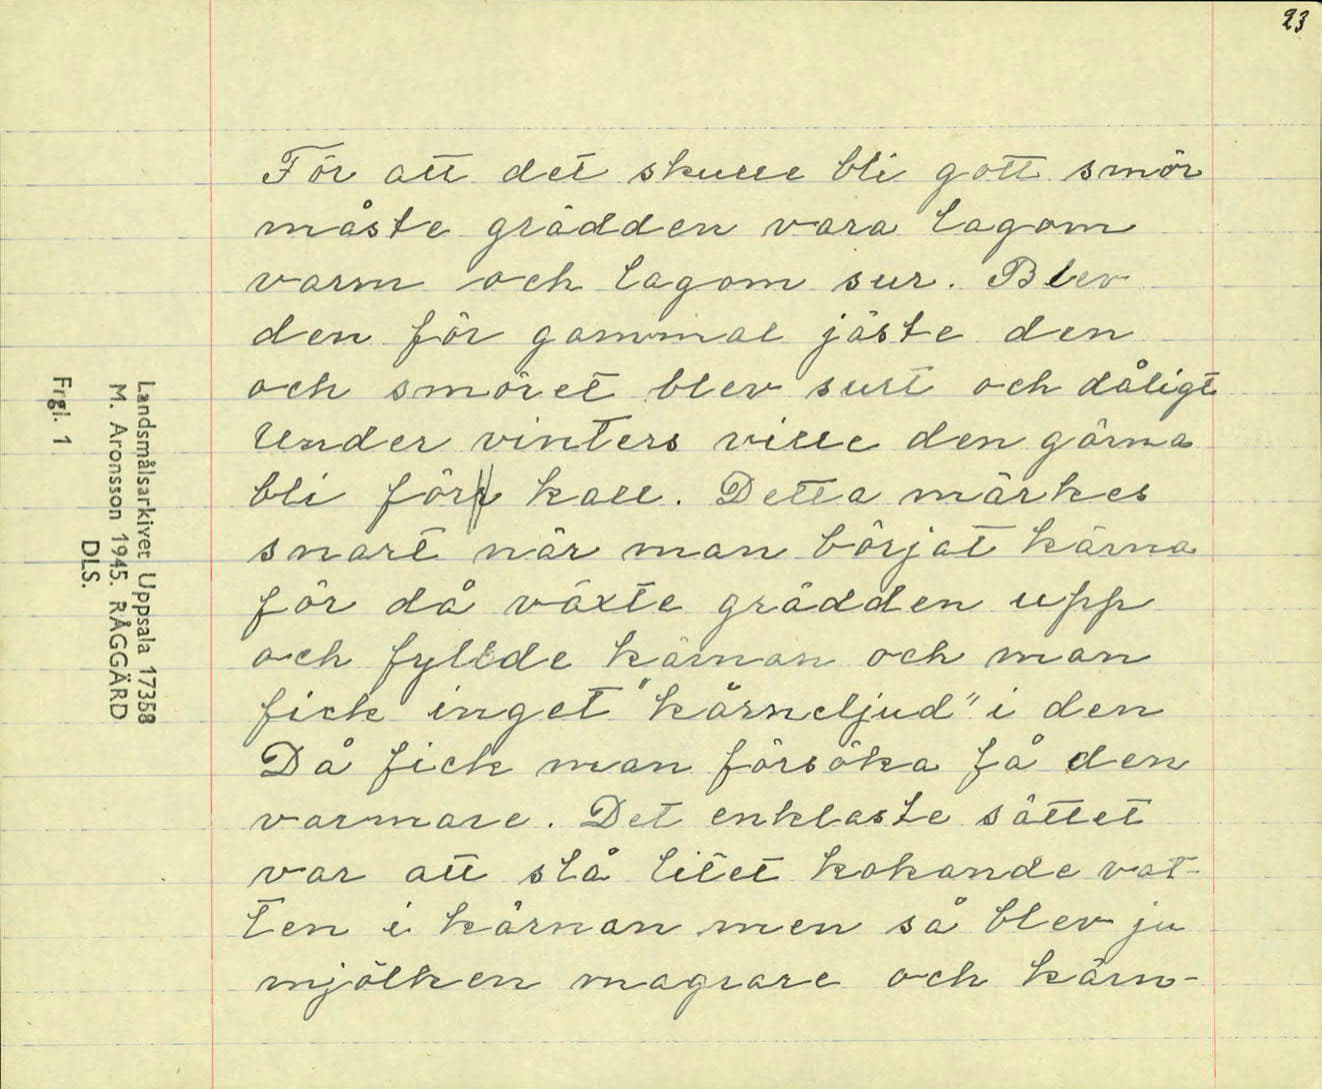 23
För att det skulle bli gott smör
måste grädden vara lagom
varm och lagom sur. Blev
den för gammal jäste den
och smöret blev surt och dåligt
Under vinters ville den gärna
bli för kall. Detta märkes
snart när man börjat kärna
för då växte grädden upp
och fyllde kärnan och man
fick inget "kärneljud" i den
Då fick man försöka få den
varmare. Det enklaste sättet
var att slå litet kokande vat-
ten i kärnan men så blev ju
mjölken magrare och kärn-
Landsmålsarkivet Uppsala 17358
M. Aronsson 1945. RÅGGÄRD
DLS.
Frgl. 1